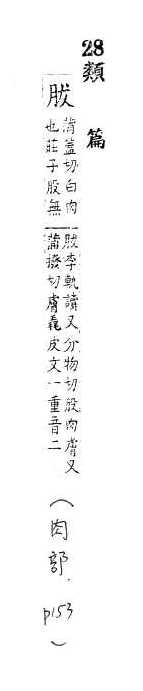 28類篇
胈
蒲蓋切白肉也莊子股無
胈李軌讀又分物切股肉膚又
蒲撥切膚毳皮文一重音二
(肉部.p153)